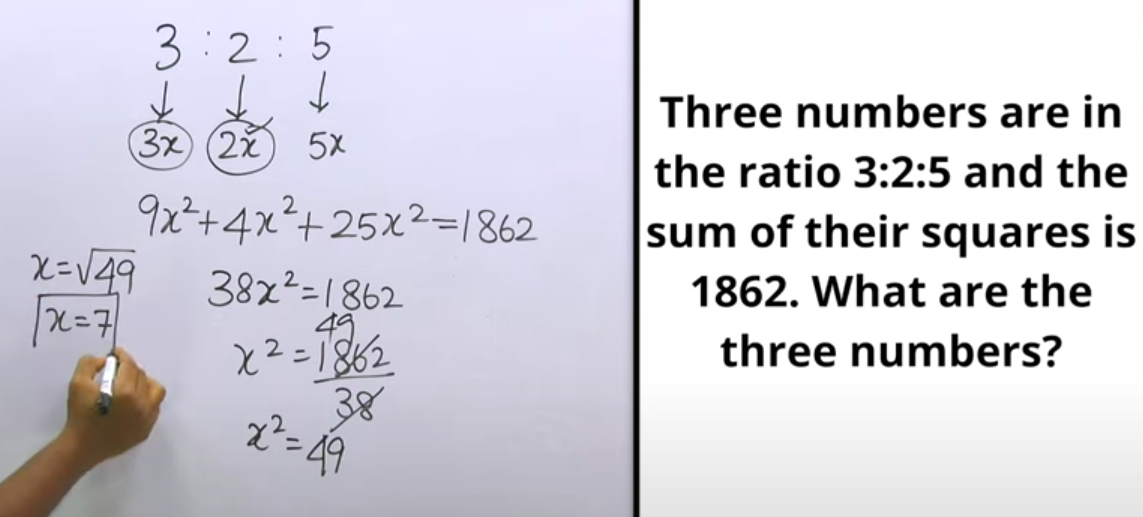 3 : 2 : 5
↓ ↓ ↓
3x 2x 5x
9x²+4x²+25x²=1862
38x²=1862
49
x²=1862
38
x²=49
x=√49
x=7
Three numbers are in
the ratio 3:2:5 and the
sum of their squares is
1862. What are the
three numbers?